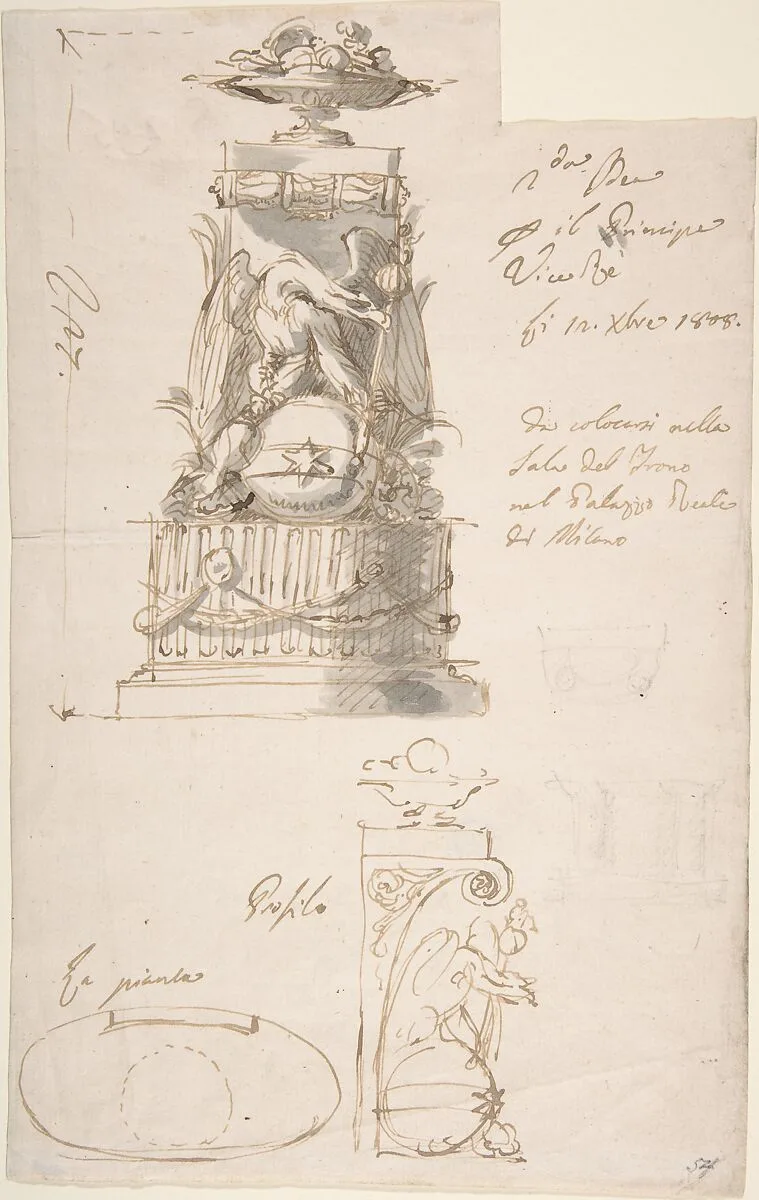 2da Idea
p il Principe
Vice Rè
li 12. Xbre 1808.
da colocarsi nella
Sala del Trono
nel Palazzo Reale
di Milano
Profilo
La pianta